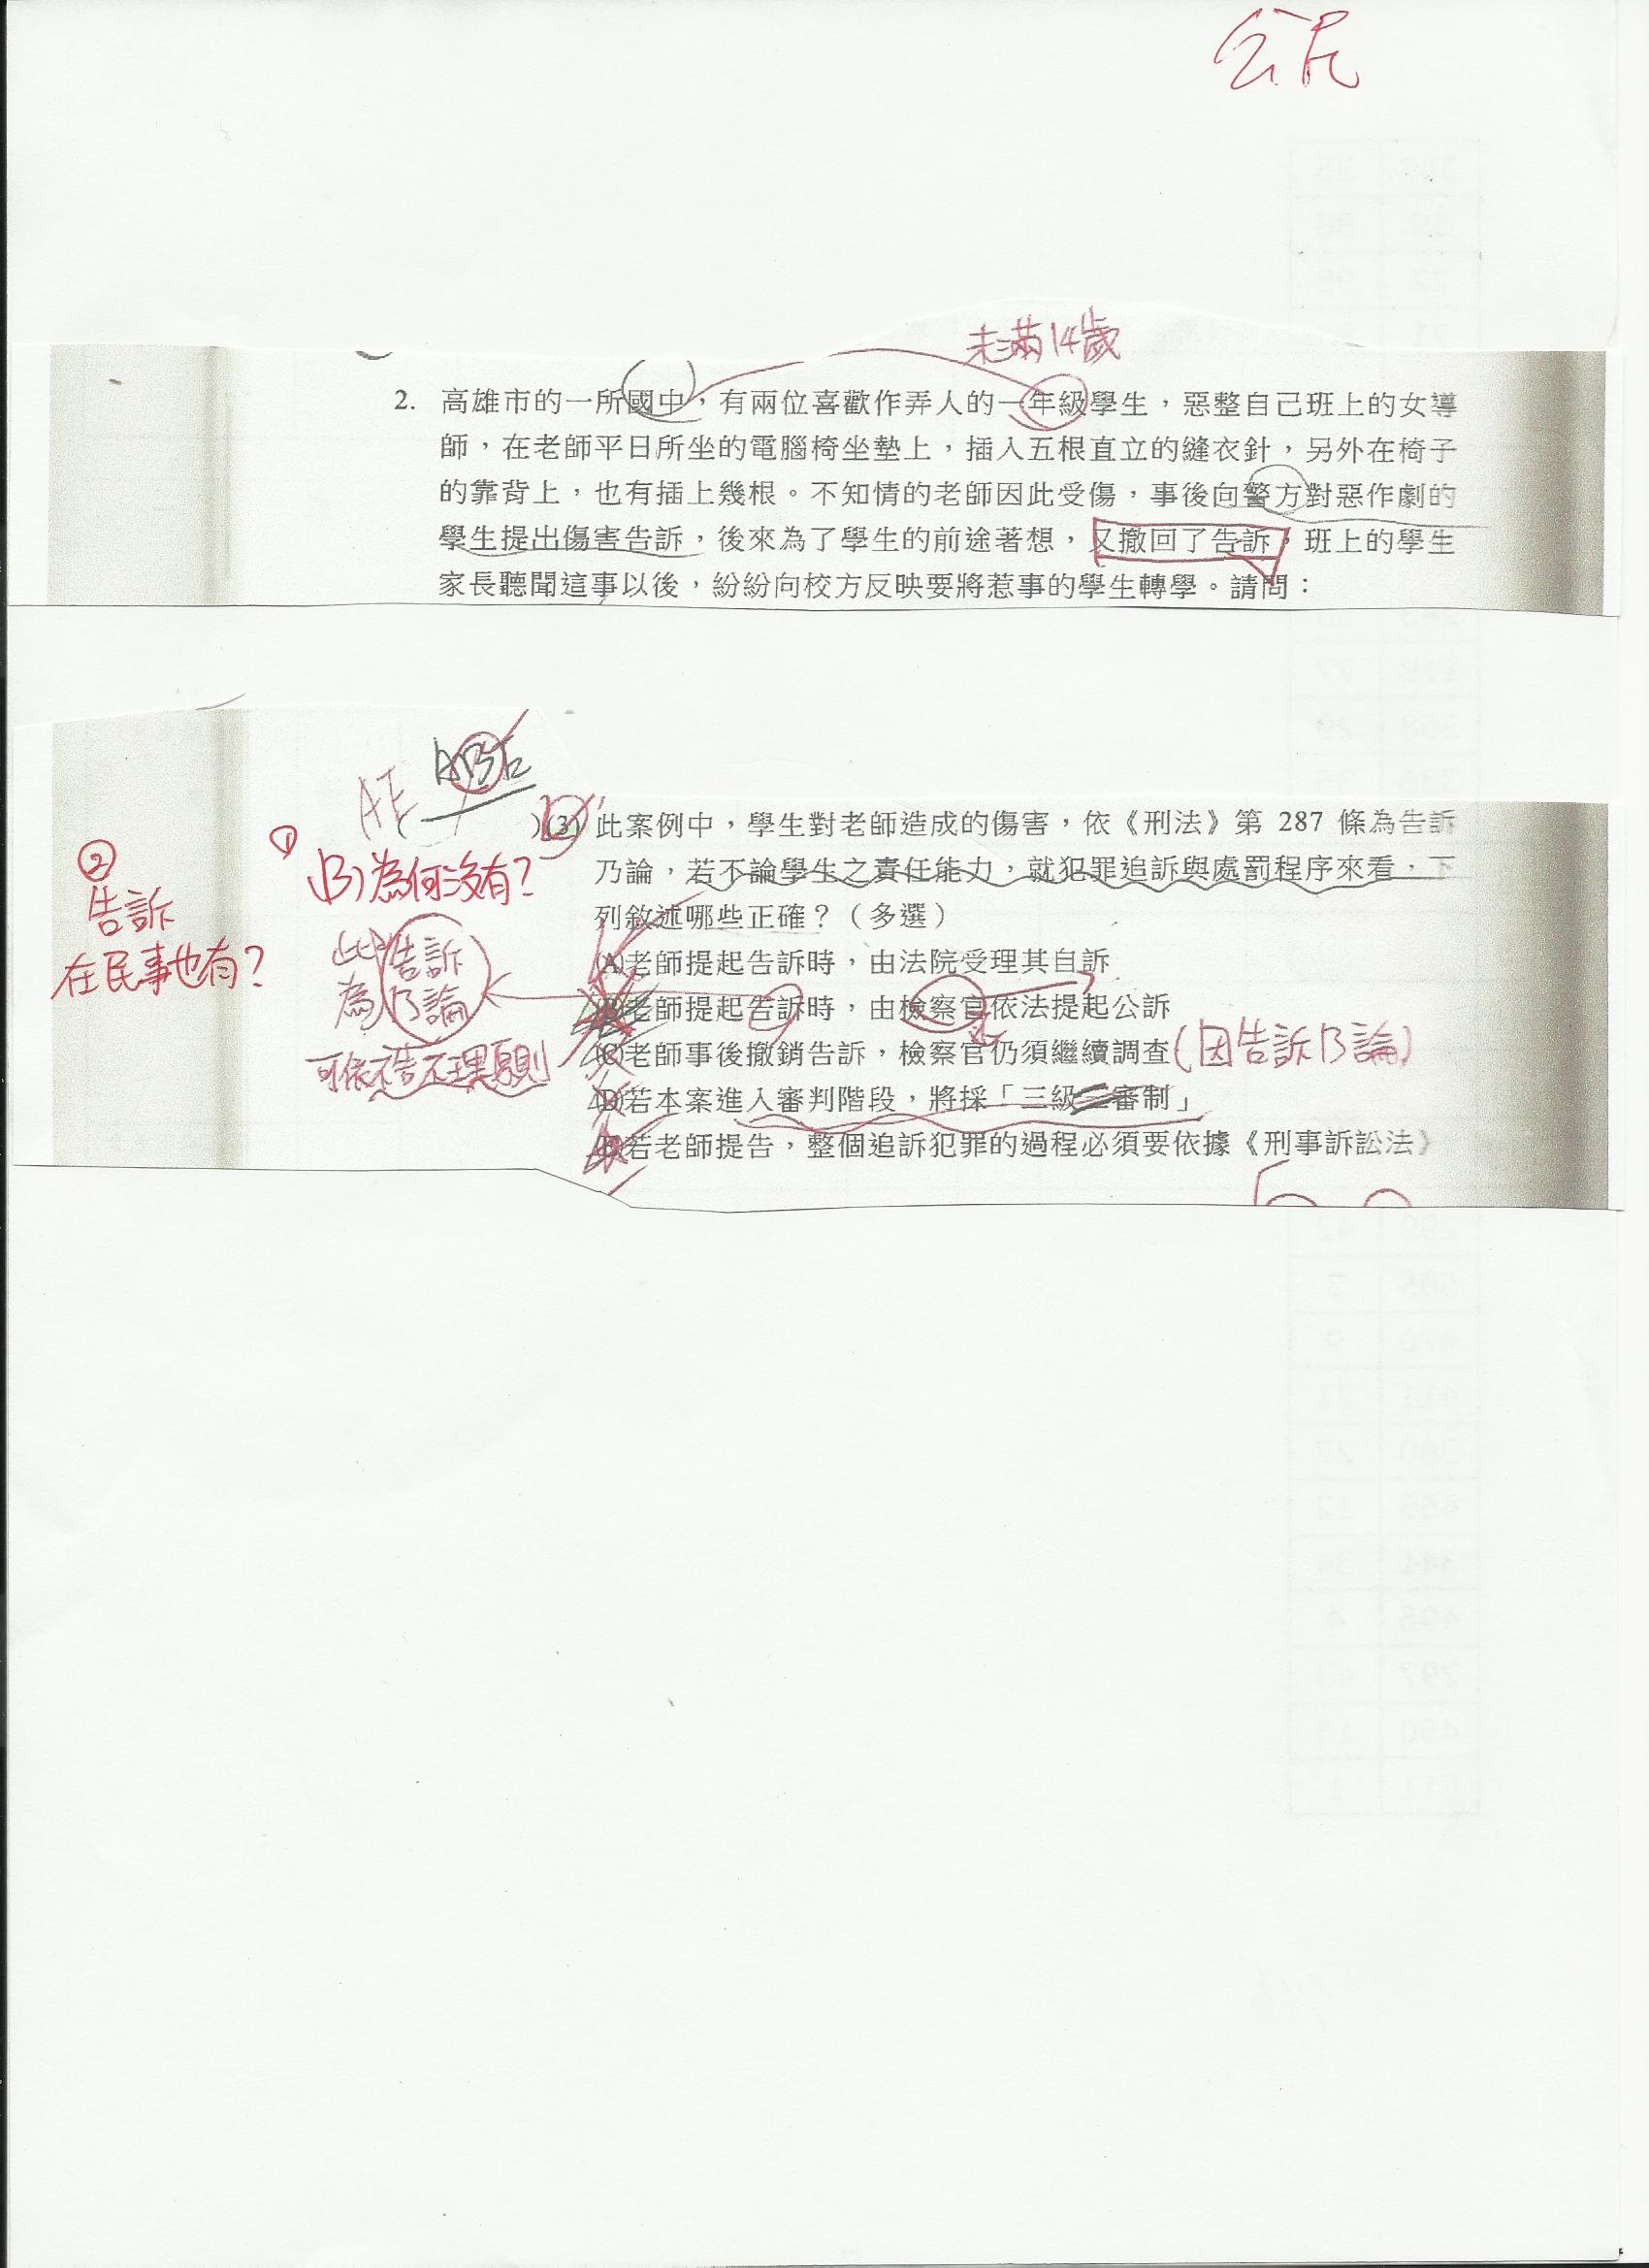 公民
未滿14歲
2. 高雄市的一所國中，有兩位喜歡作弄人的一年級學生，惡整自己班上的女導
師，在老師平日所坐的電腦椅坐墊上，插入五根直立的縫衣針，另外在椅子
的靠背上，也有插上幾根。不知情的老師因此受傷，事後向警方對惡作劇的
學生提出傷害告訴，後來為了學生的前途著想，又撤回了告訴，班上的學生
家長聽聞這事以後，紛紛向校方反映要將惹事的學生轉學。請問：
ABE
AE
( )(3) 此案例中，學生對老師造成的傷害，依《刑法》第 287 條為告訴
乃論，若不論學生之責任能力，就犯罪追訴與處罰程序來看，下
列敘述哪些正確？（多選）
(A)老師提起告訴時，由法院受理其自訴
(B)老師提起告訴時，由檢察官依法提起公訴
(C)老師事後撤銷告訴，檢察官仍須繼續調查(因告訴乃論)
(D)若本案進入審判階段，將採「三級三審制」
(E)若老師提告，整個追訴犯罪的過程必須要依據《刑事訴訟法》
①
(B)為何沒有？
此告訴
為乃論
可依不告不理原則
②
告訴
在民事也有？